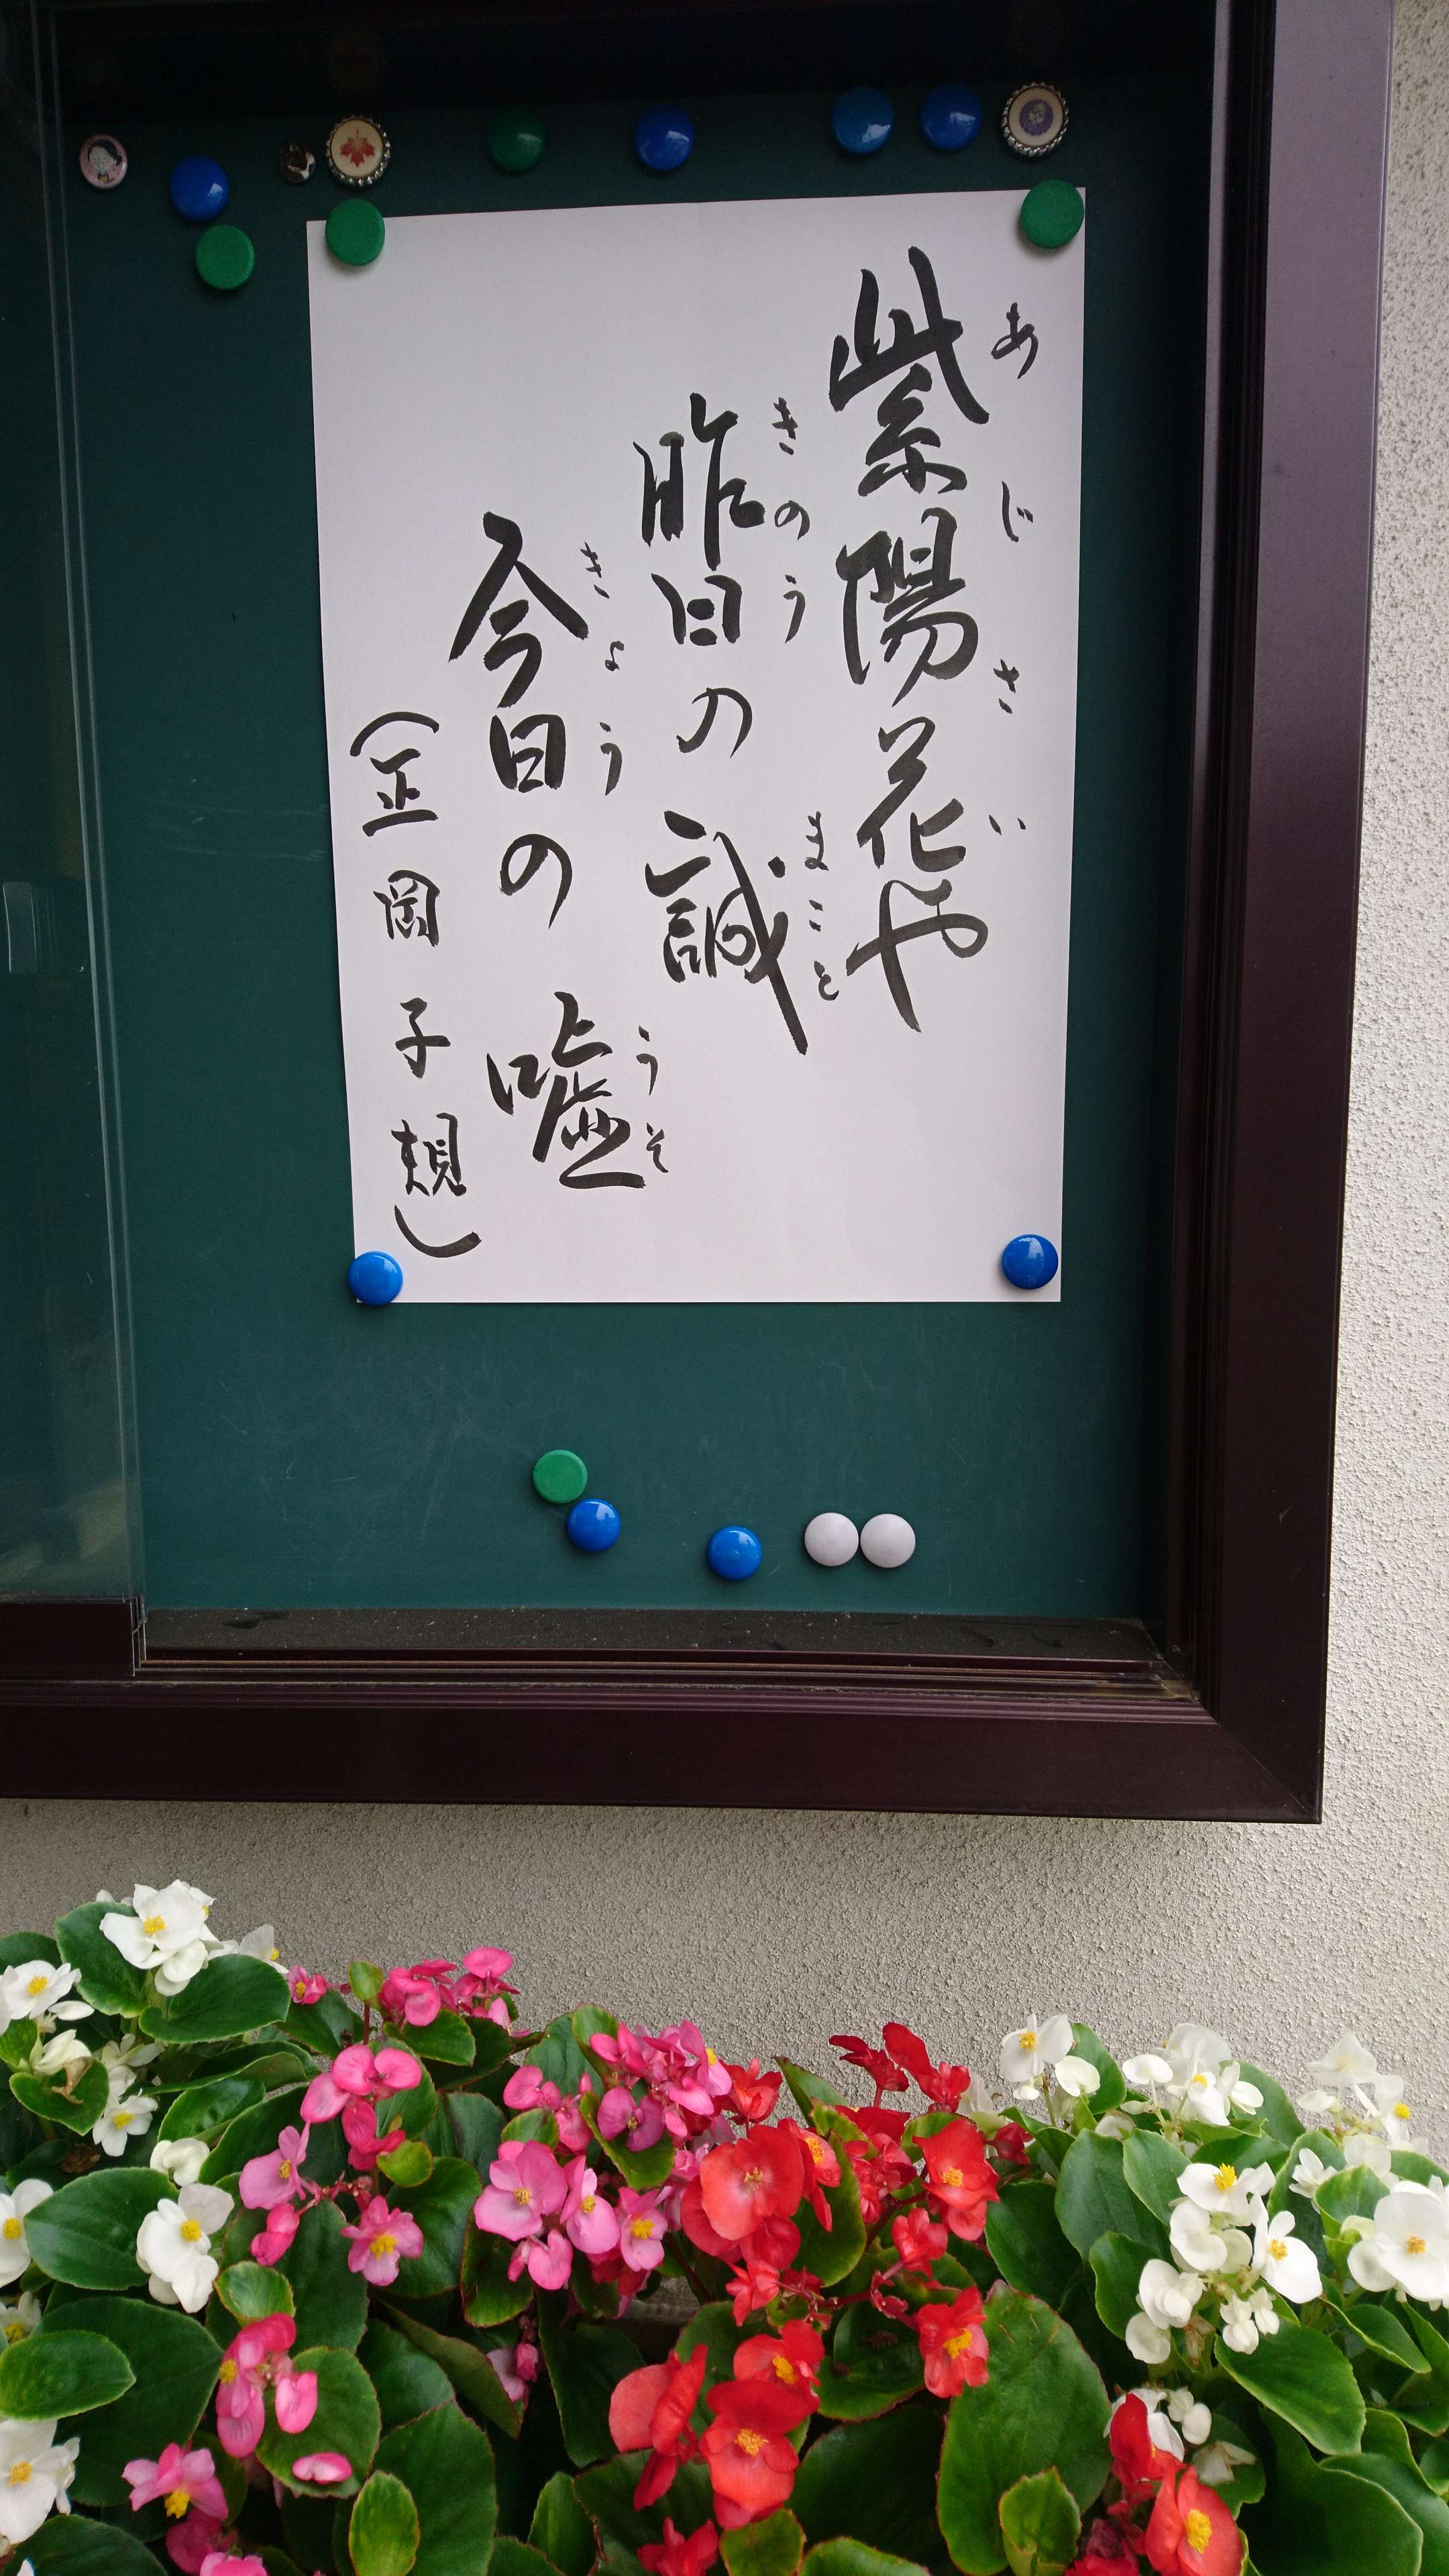 紫陽花や
あじさい
昨日の誠
きのう まこと
今日の嘘
きょう うそ
(正岡子規)